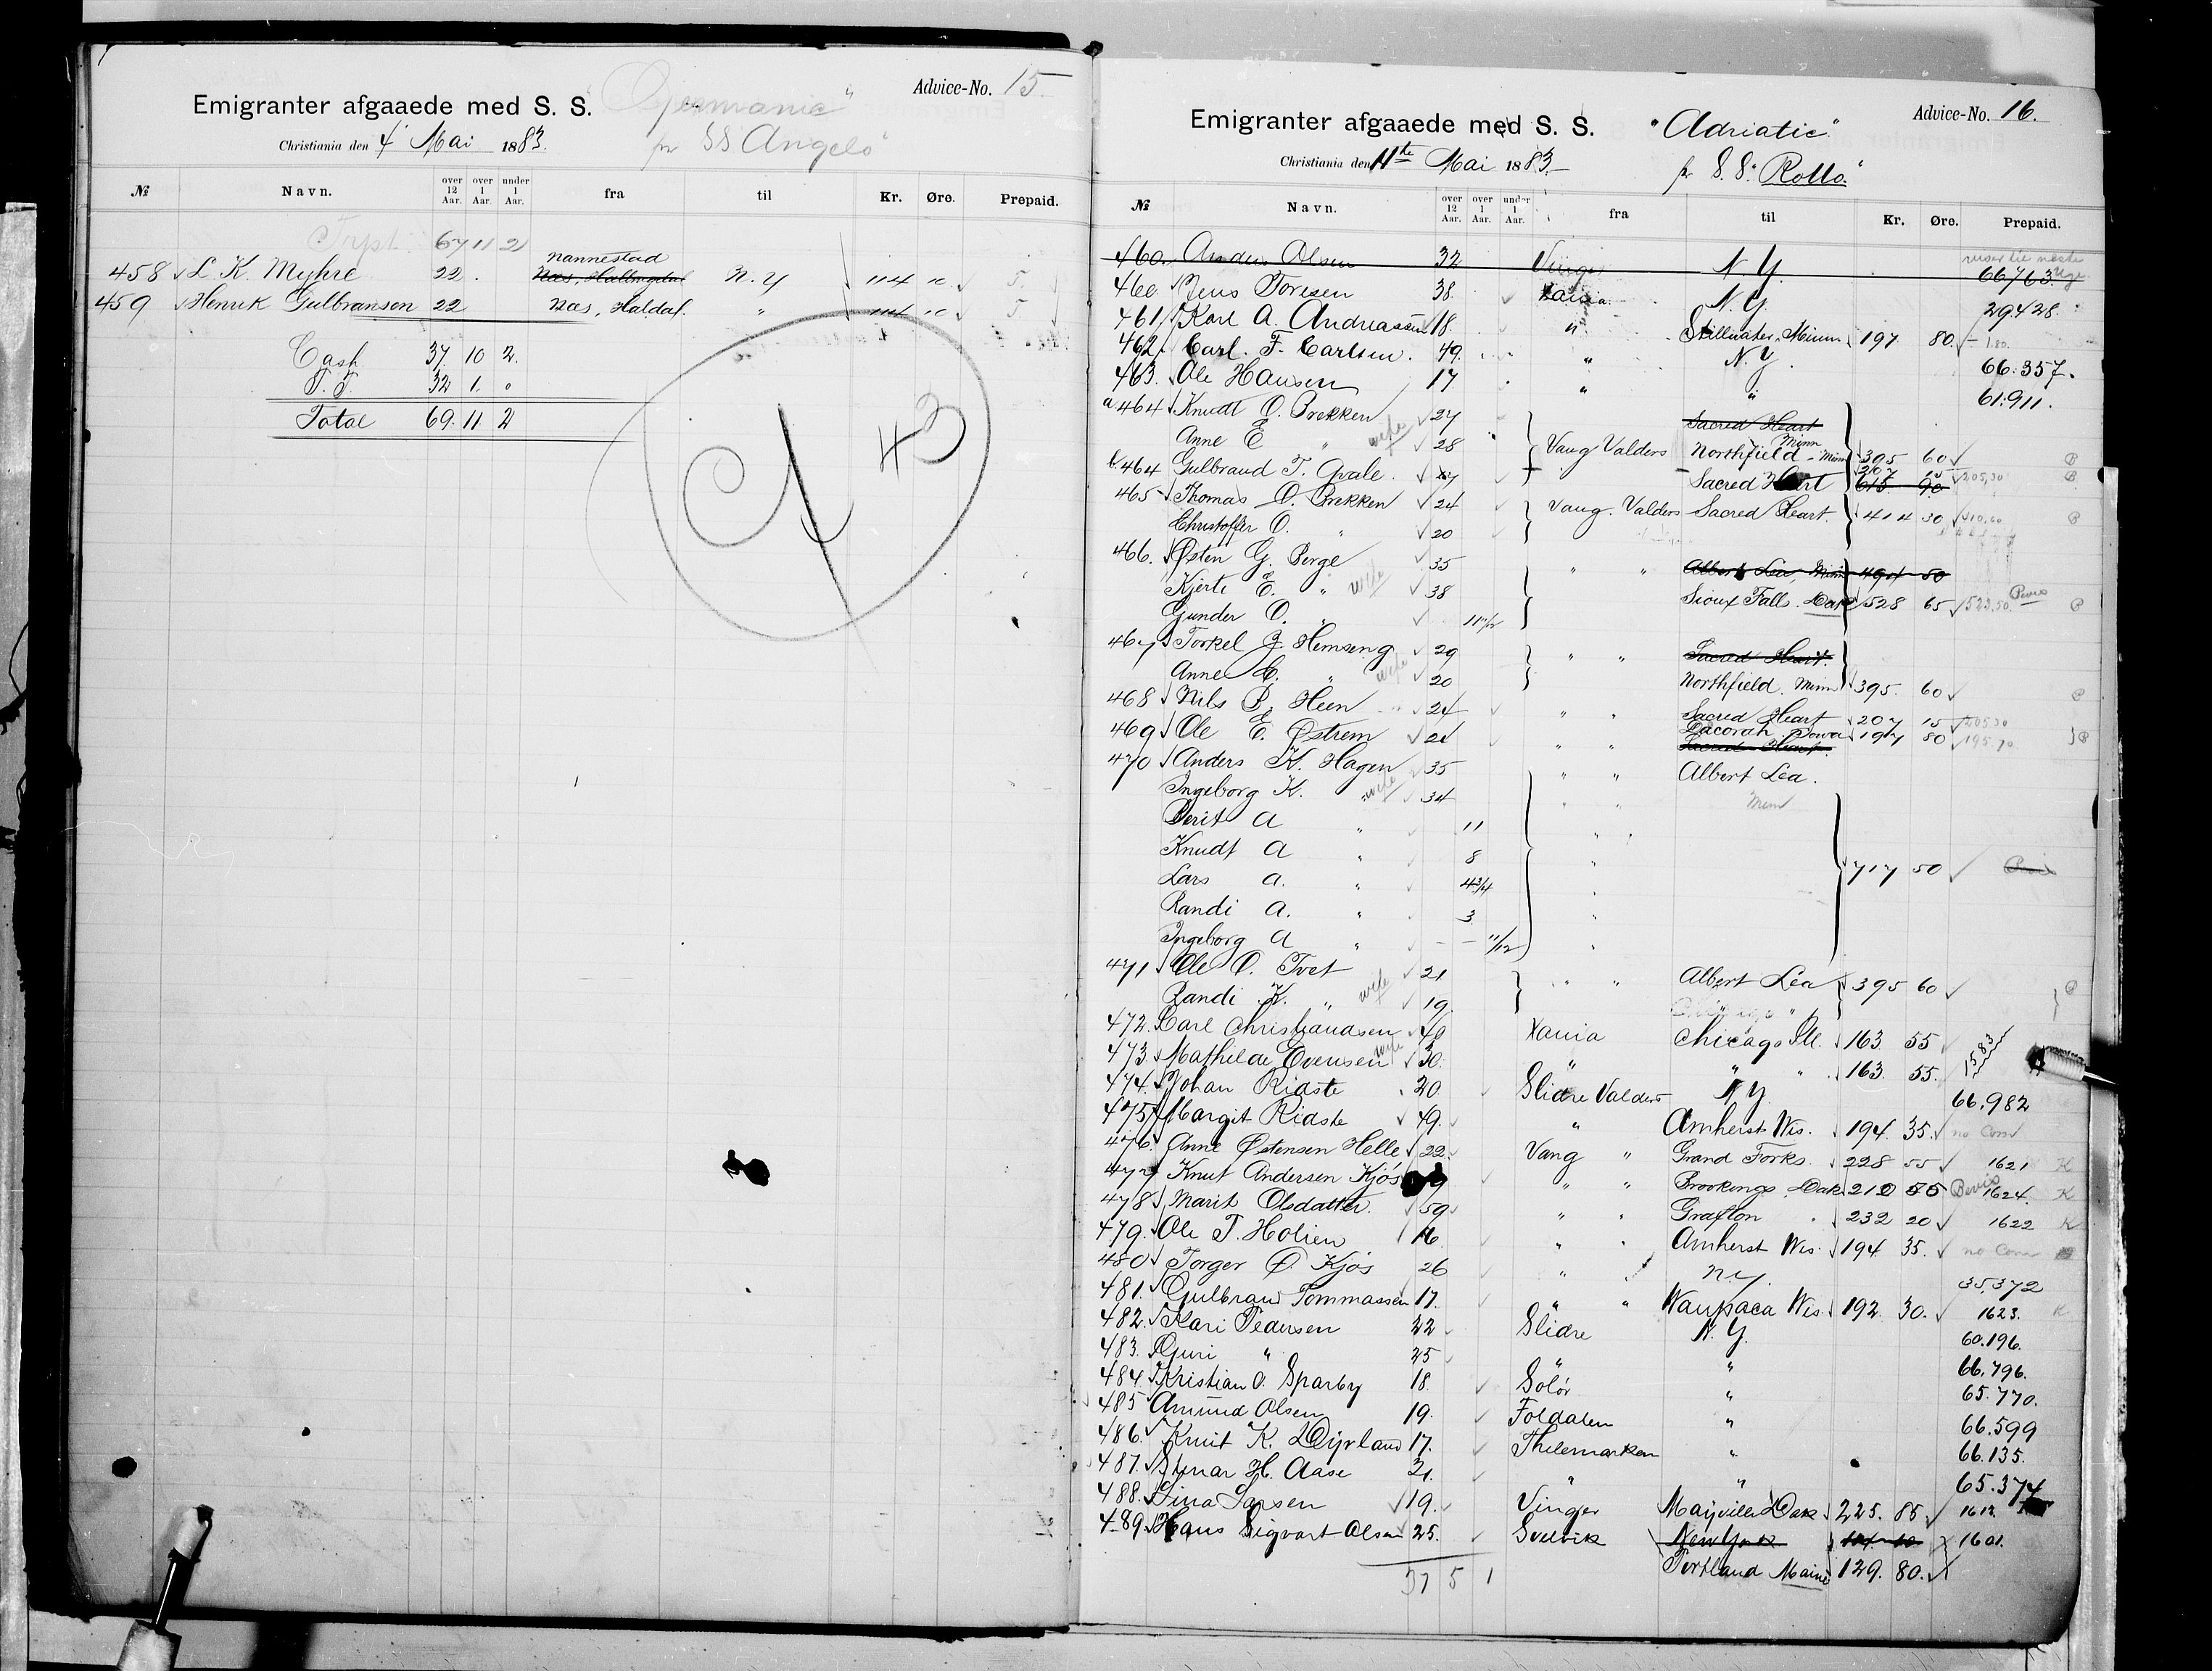 Advice-No. 15
Emigranter afgaaede med S. S. "Germanic"
Christiania den 4' Mai 1883. pr SS Angelo"
№ Navn. over 12 Aar. over 1 Aar. under 1 Aar. fra til Kr. Øre. Prepaid.
Trspt 67 11 2
Nannestad
458 L. K. Myhre 22 N.Y 114 10 5
459 Henrik Gulbransen 22 Næs, Haldal. " 114 10 5
Cash 37 10 2.
P. P. 32 1. "
Total 69. 11 2
43
Advice-No. 16.
Emigranter afgaaede med S. S. "Adriatic"
Christiania den 11te Mai 1883.- pr S. S. "Rollo"
№ Navn. over 12 Aar. over 1 Aar. under 1 Aar. fra til Kr. Øre. Prepaid.
reiser til næste Uge
460. Anders Olsen 32 Vinger N.Y. 66763
460 Jens Toresen 38. Xania. N.Y. 29428
461 Karl A. Andreassen 18. " Stillwater, Minn 197 80. - 1.80.
462. Carl. F. Carlsen. 49. " N.Y. 66.357.
463. Ole Hansen 17 " " 61.911.
a 464 Knudt O. Brekken 27 Sacred Heart
Anne E " wife 28 Vang Valders Northfield - Minn 395 60
b. 464 Gulbrand T. Qvale. " Sacred Heart 207 15 205,30
615 90
465 Thomas O. Brekken 24 Vang. Valders Sacred Heart. 414 30 410,60
Christoffer O. " 20
466. Østen G. Berge 35 " " Albert Lea, Minn 494 50
Kjerti E. " wife 38 Sioux Falls. Dak 528 65 523,50. Bevis
Gunder O. " 11 11/12
467 Torkel G Hemseng 29 " " Sacred Heart.
Anne E. " wife 20 Northfield. Minn 395. 60
468 Nils B. Heen 24 " " Sacred Heart 207 15 205 30
469 Ole E. Østrem 21 " " Decorah. Iowa 197 80 195.70
Sacred Heart.
470 Anders K. Hagen 35 " " Albert Lea.
Ingeborg K. " wife 34 " " Minn
Berit A " 11 " "
Knudt A " 8 " 717 50
Lars A. " 4 3/4 "
Randi A. " 3 "
Ingeborg A " 11/12 "
471 Ole O. Tvet 21 " " Albert Lea 395 60
Randi K. " wife 19
472. Carl Christiandsen 40 Xania Chicago Ill. 163 55
473 Mathilde Evensen wife 30. " " " 163. 55. 1583
474. Johan Ridste 20 Slidre Valders N.Y. 66.982
475 Margit Ridste 49. " Amherst Wis. 194. 35. no Com
476. Anne Østensen Helle 22 Vang " Grand Forks. 228 55 1621 K
477 Knut Andersen Kjös " " Brookings. Dak. Bevis 1624. K
478 Marit Olsdatter. 59 " " Grafton 232 20 1622 K
479. Ole T. Holien 16 " " Amherst Wis. 194 35. no Com
480 Torger O. Kjös 26 " N.Y. 35,372
481. Gulbrand Tommassen 17. " " Waupaca Wis. 192. 30. 1623. K
482. Kari Pedersen 22 Slidre N.Y. 60.196.
483. Guri " 25 " " 66.796.
484. Kristian O. Sparby 18. Solör " 65.770.
485 Amund Olsen 19. Foldalen " 66.599
486. Knut K. Dyrland 17. Thelemarken " 66.135.
487. Gunar H. Aase 21. " " 65.374
488. Lina Larsen 19. Vinger Mayville Dak 225. 85.
489. Hans Sigvart Olsen 25. Svelvik New York 1601.
Portland Maine 129. 80.
37 5 1